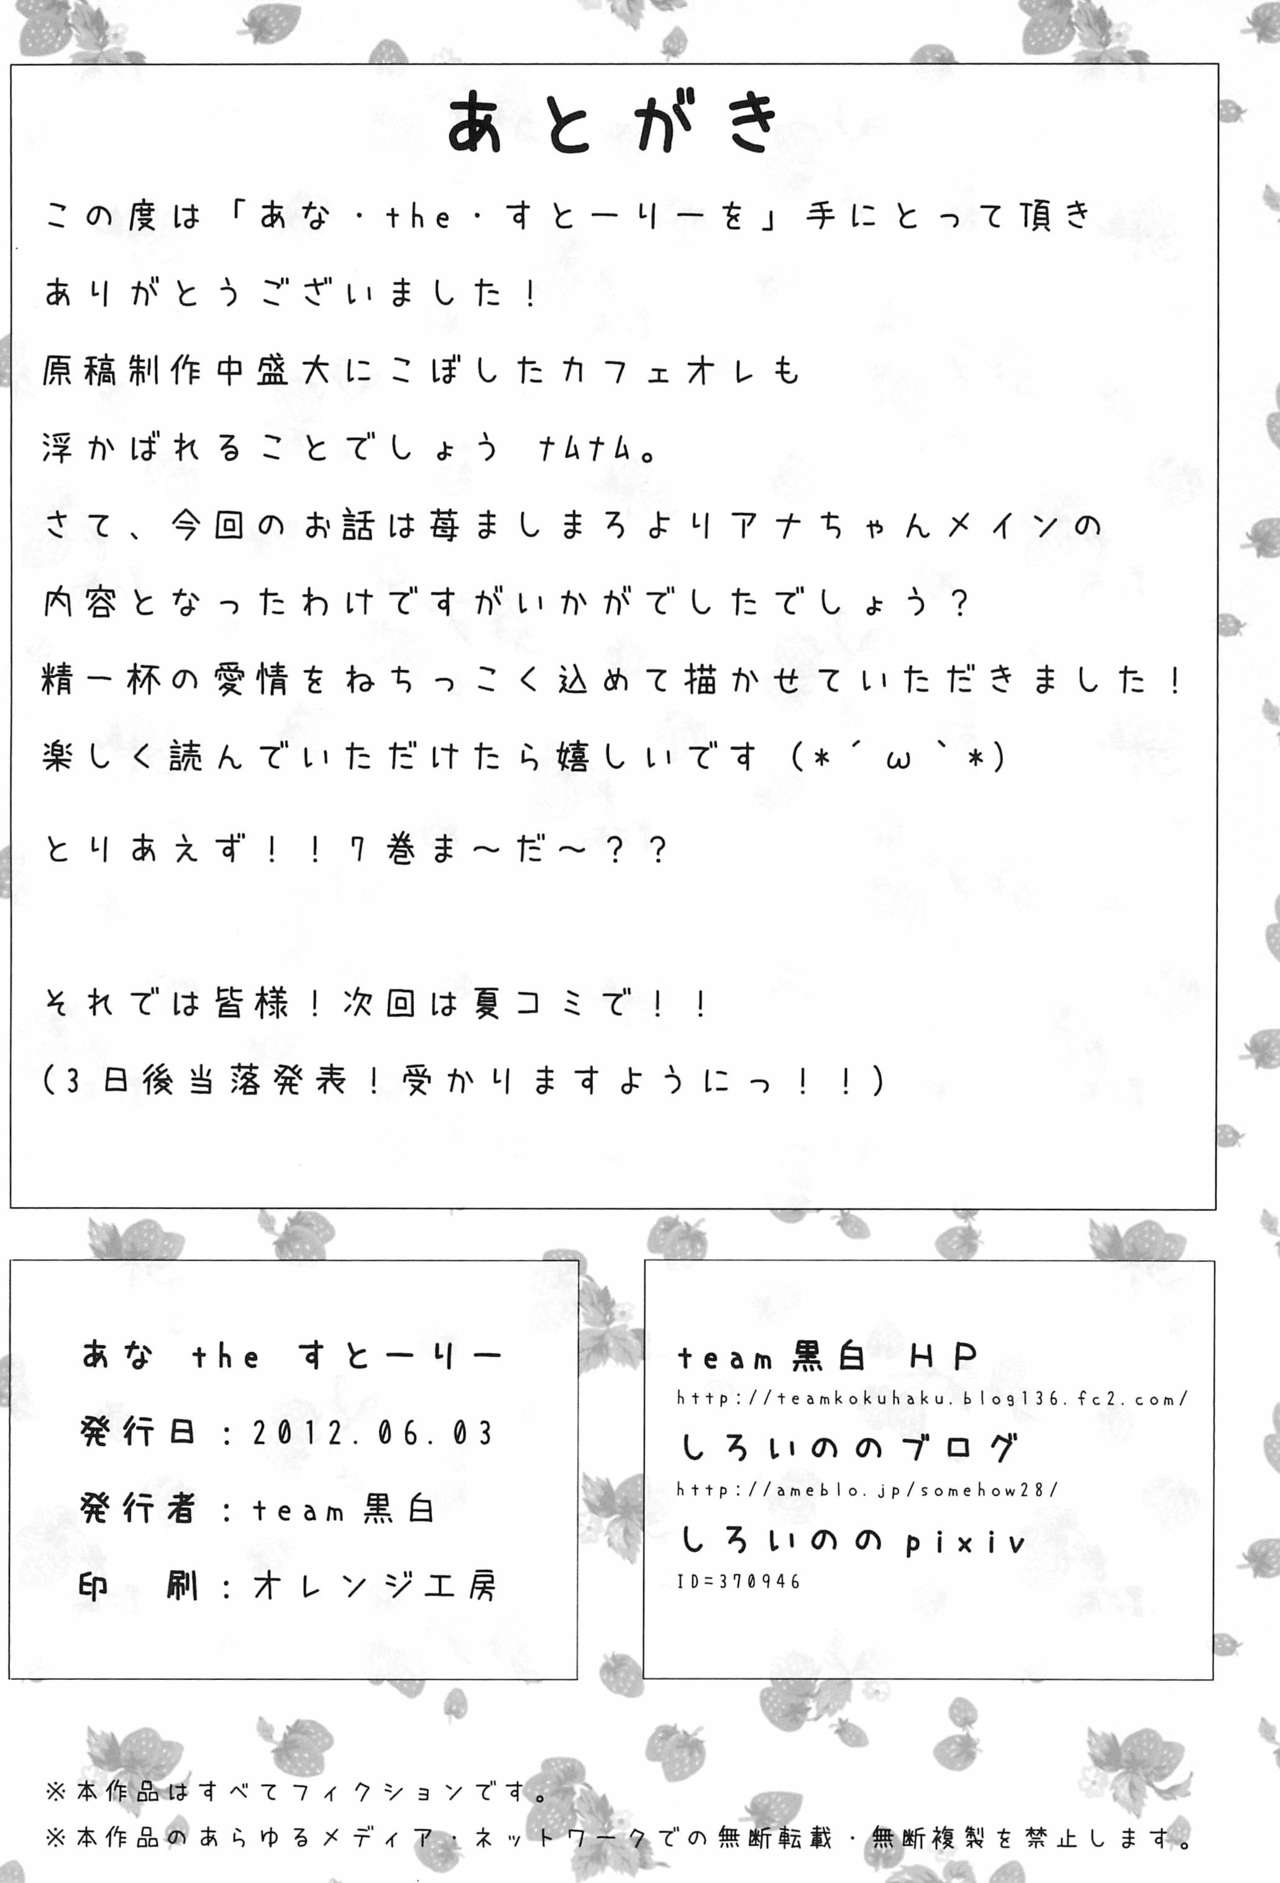 あとがき
この度は「あな・the・すとーりーを」手にとって頂き
ありがとうございました！
原稿制作中盛大にこぼしたカフェオレも
浮かばれることでしょう ﾅﾑﾅﾑ。
さて、今回のお話は苺ましまろよりアナちゃんメインの
内容となったわけですがいかがでしたでしょう？
精一杯の愛情をねちっこく込めて描かせていただきました！
楽しく読んでいただけたら嬉しいです（*´ω｀*）
とりあえず！！7巻ま～だ～？？
それでは皆様！次回は夏コミで！！
（3日後当落発表！受かりますようにっ！！）
あな the すとーりー
発行日：2012.06.03
発行者：team黒白
印　刷：オレンジ工房
team黒白 HP
http://teamkokuhaku.blog136.fc2.com/
しろいののブログ
http://ameblo.jp/somehow28/
しろいののpixiv
ID=370946
※本作品はすべてフィクションです。
※本作品のあらゆるメディア・ネットワークでの無断転載・無断複製を禁止します。